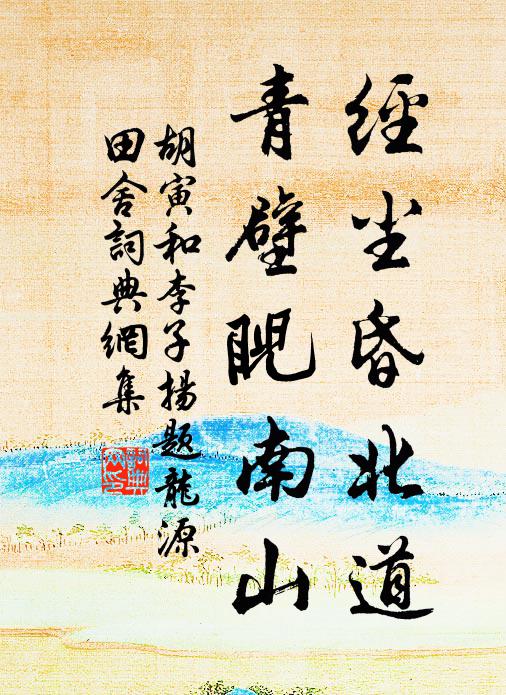 經尘昏北道
青壁睨南山
胡寅和李子揚题龍源
田舍詞典網集